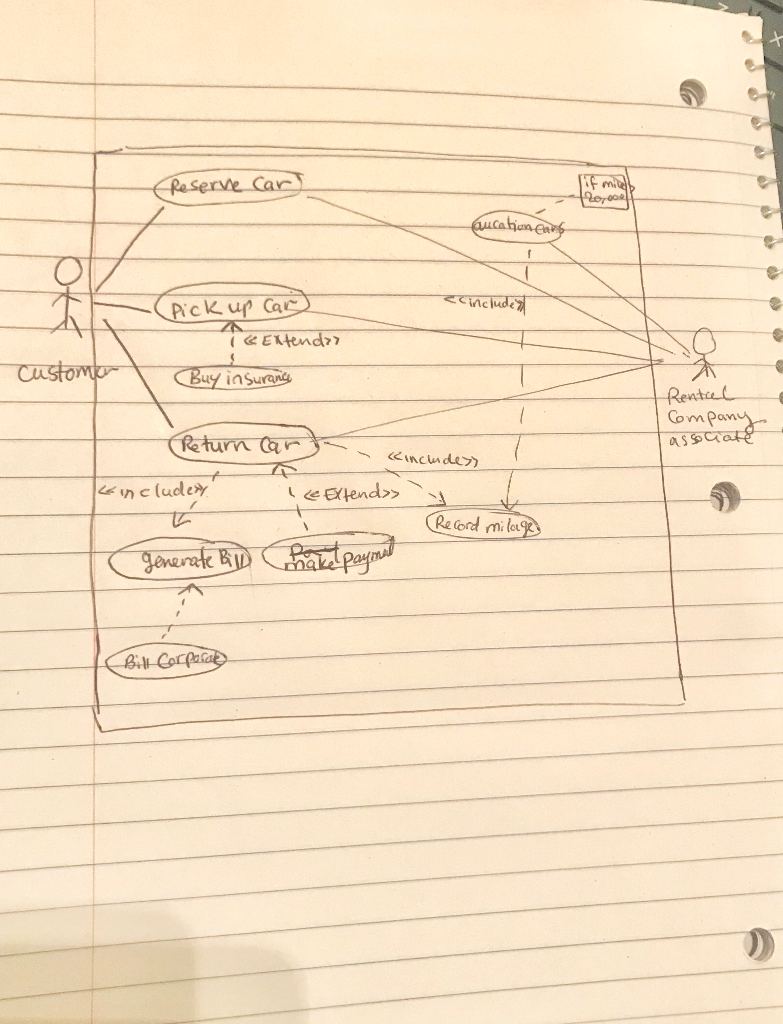 Reserve Car
if mile>
20,000
aucation cars
Pick up Car
<<include>>
<<Extend>>
Customer
Buy insurance
Rental
Company
associate
Return Car
<<include>>
<<include>>
<<Extend>>
Record milage
generate Bill
make payment
Bill Corporate